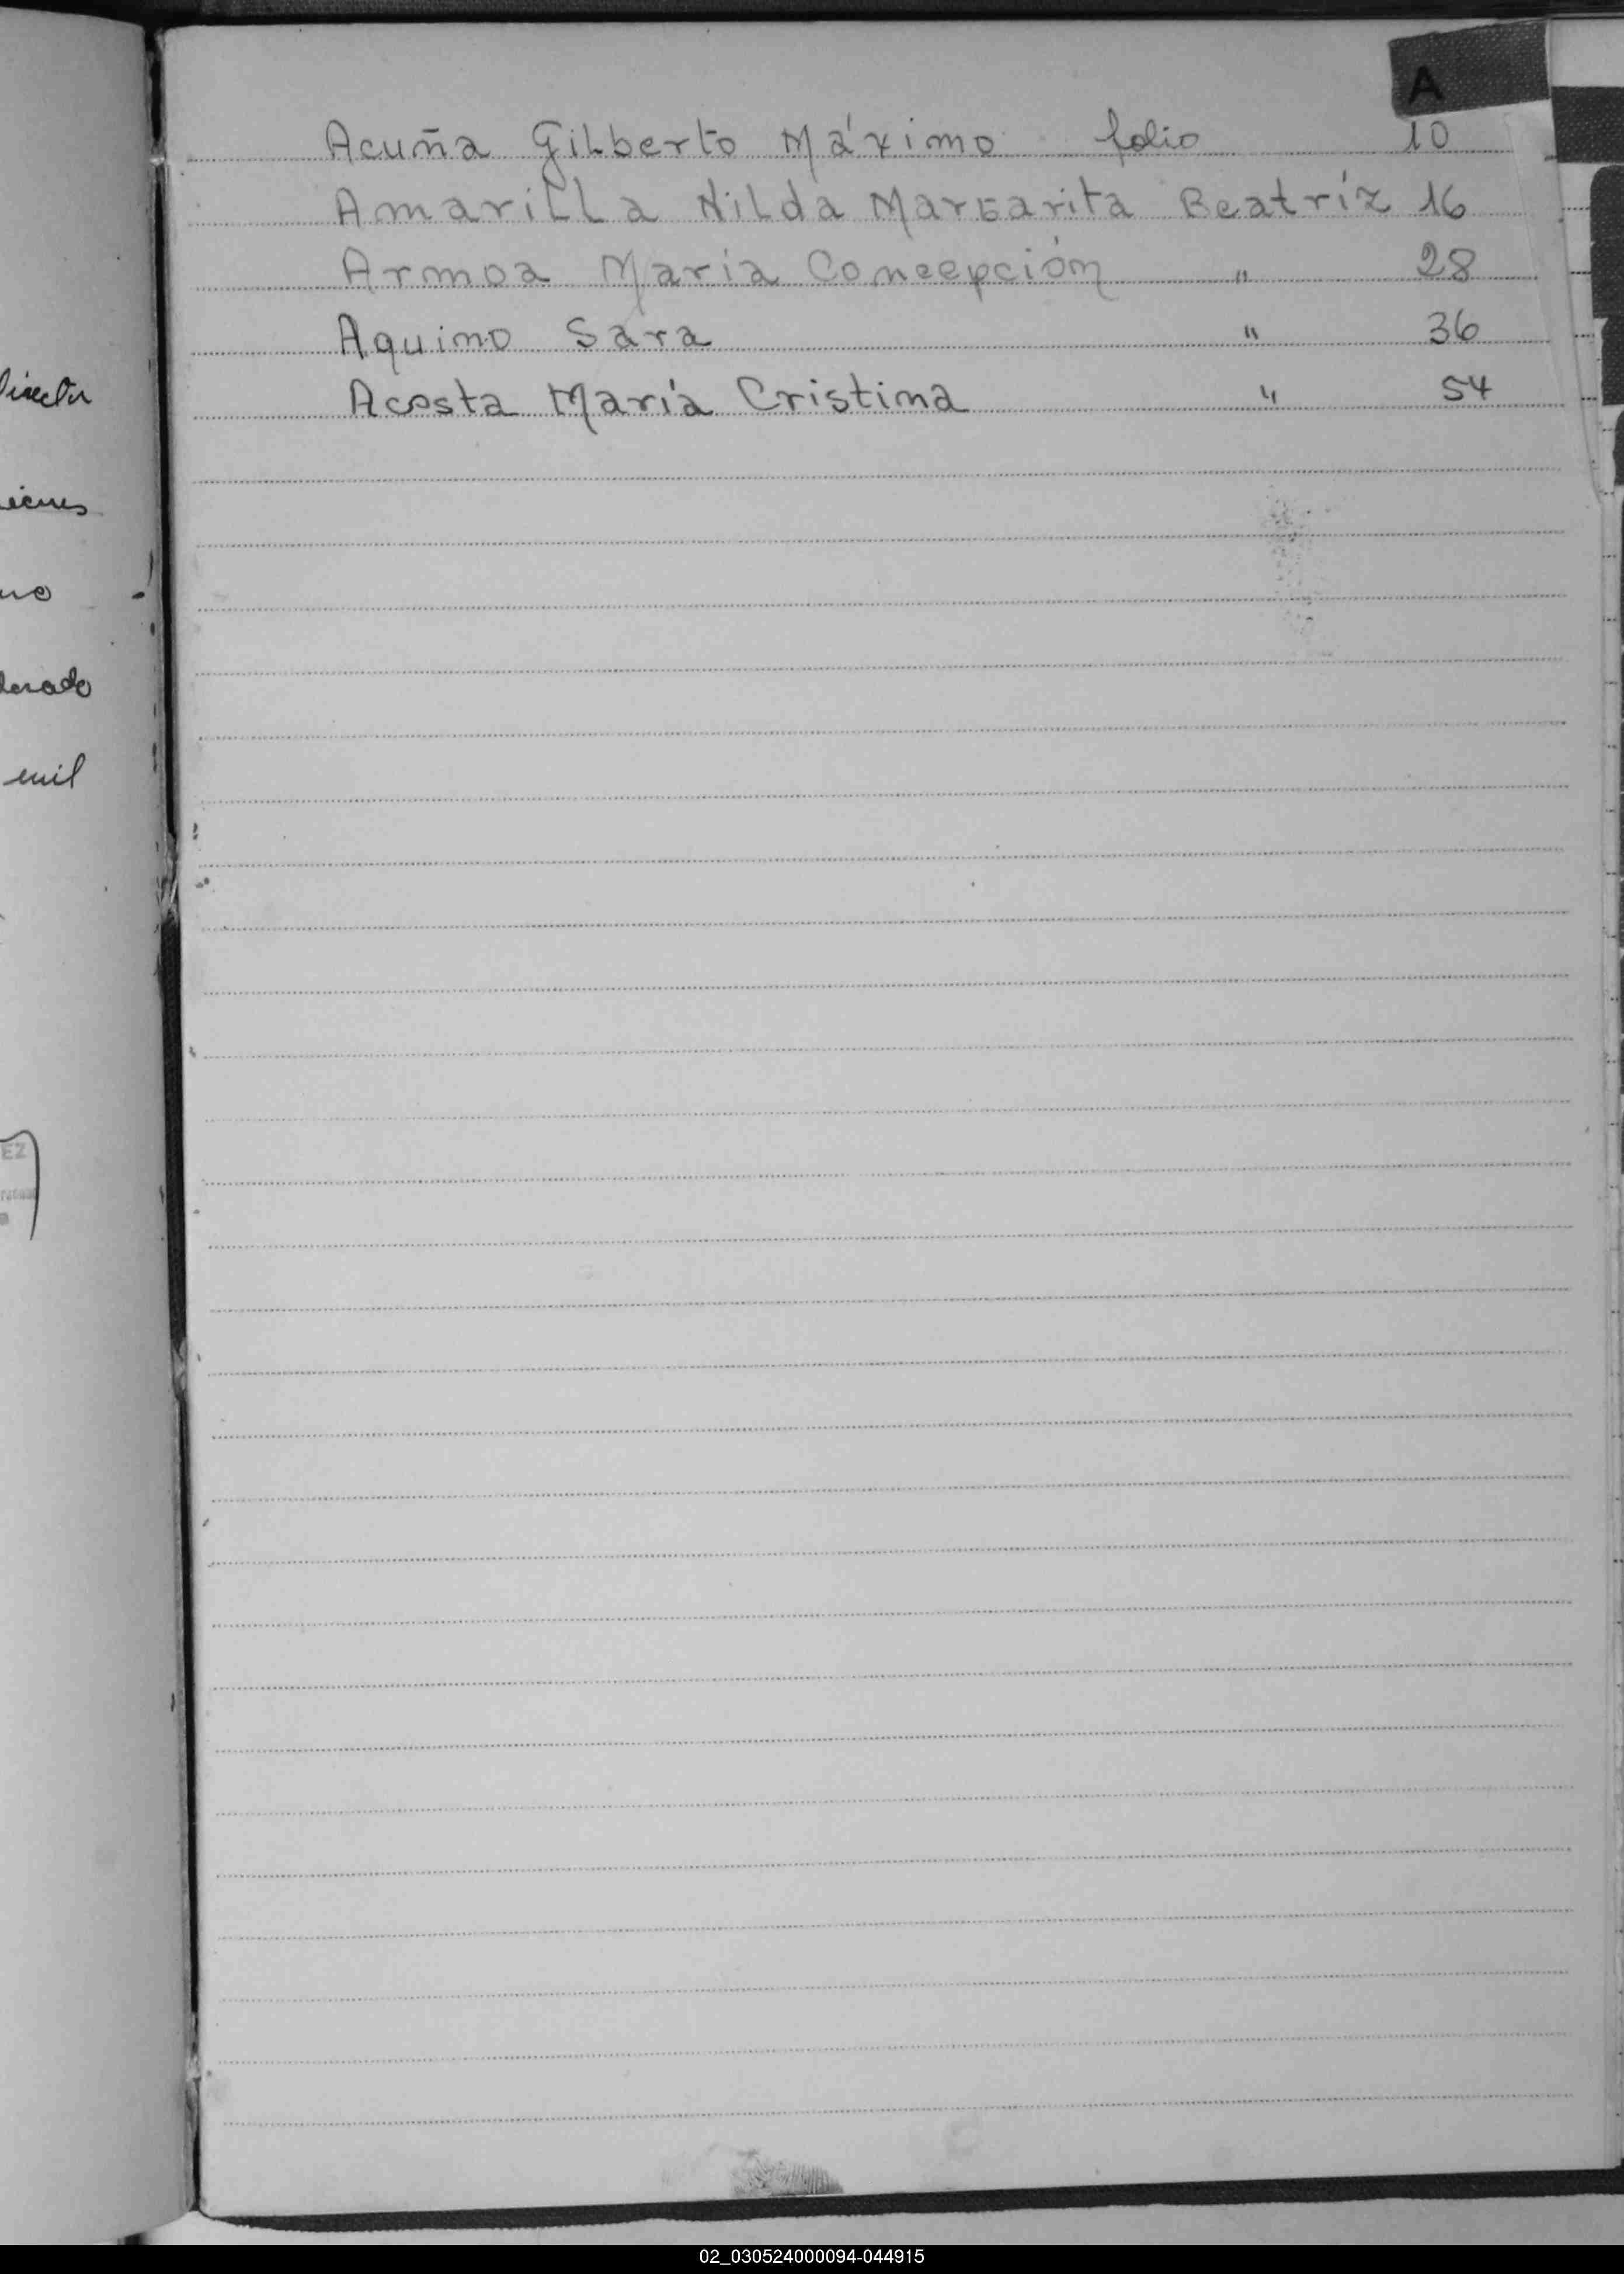 A
Acuña Gilberto Máximo folio 10
Amarilla Nilda Margarita Beatríz 16
Armoa María Concepción " 28
Aquino Sara " 36
Acosta María Cristina " 54
mil
EZ
02_030524000094-044915